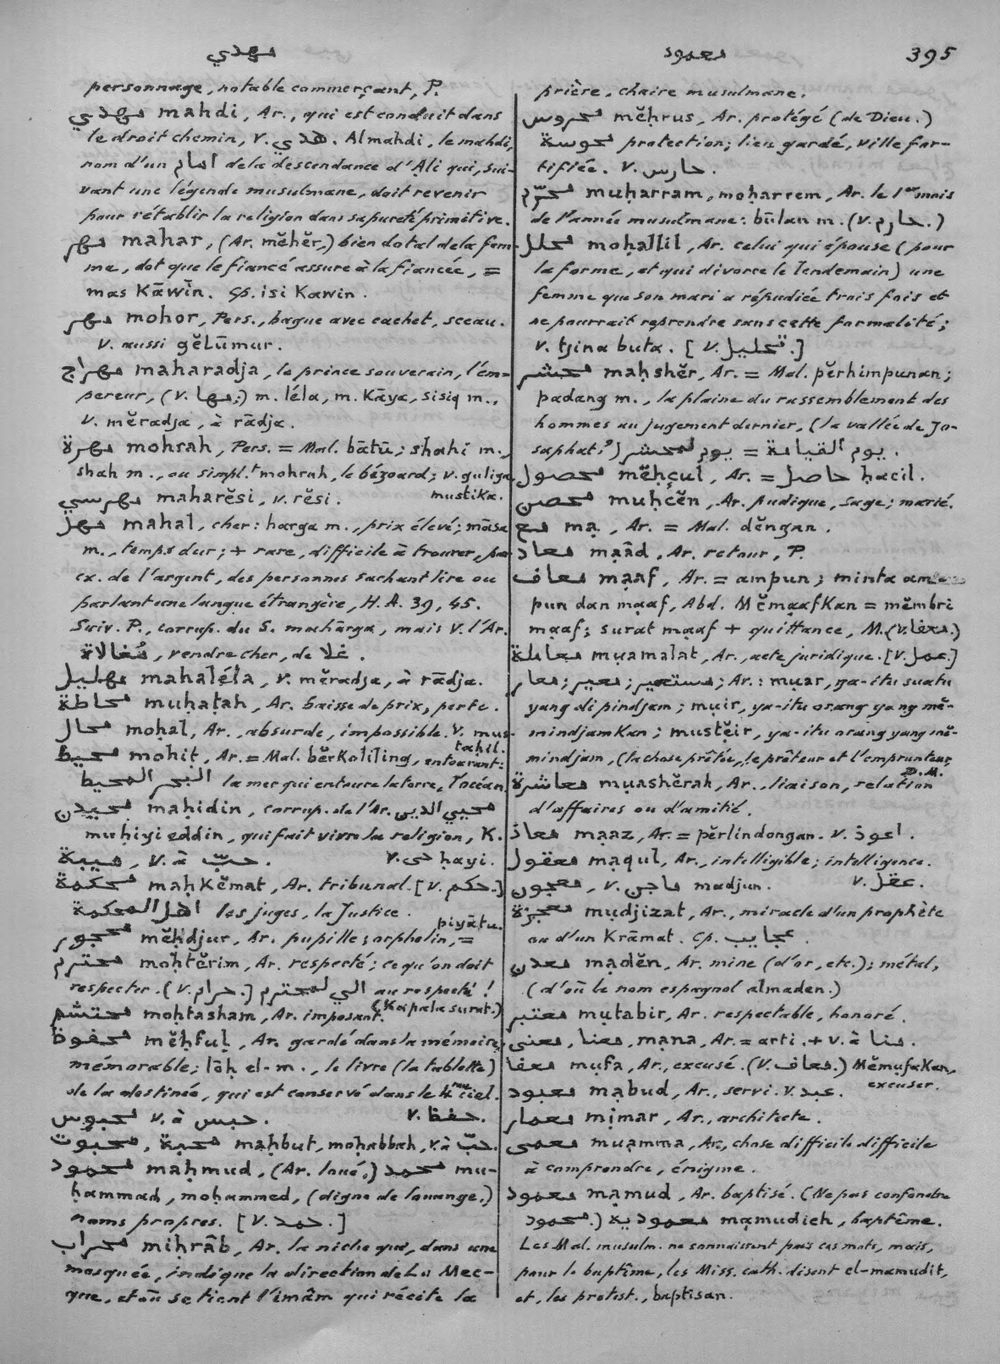 مهدي
معمود
395
personnage, notable commerçant, P.
مهدي mahdi, Ar., qui est conduit dans
le droit chemin, V. هدي. Almahdi, le mahdi,
nom d'un امام de la descendance d'Ali qui, sui-
vant une légende musulmane, doit revenir
pour rétablir la religion dans sa pureté primitive.
مهر mahar, (Ar. mĕhĕr,) bien dotal de la fem-
me, dot que le fiancé assure à la fiancée, =
mas Kāwin. Cp. isi Kawin.
مهر mohor, Pers., bague avec cachet, sceau.
V. aussi gĕlūmur.
مهراج maharadja, le prince souverain, l'em-
pereur, (V. مها;) m. léla, m. Kāya, sisiq m.,
V. mĕradja, à rādja.
مهرة mohrah, Pers. = Mal. bātū; shahi m.,
shah m., ou simpl.t mohrah, le bézoard; V. guliga
mustika.
مهرسي maharĕsi, V. rĕsi.
مهل mahal, cher: harga m., prix élevé; māsa
m., temps dur; + rare, difficile à trouver, par
ex. de l'argent, des personnes sachant lire ou
parlant une langue étrangère, H. A. 39, 45.
Suiv. P., corrup. du S. mahārga, mais V. l'Ar.
مُغالاة, vendre cher, de غلا.
مهليل mahaléla, V. mĕradja, à rādja.
محاطة muḥaṭah, Ar. baisse de prix, perte.
محال moḥal, Ar., absurde, impossible. V. mus-
taḥil.
محيط mohit, Ar. = Mal. bĕrKoliling, entourant:
البحر المحيط la mer qui entoure la terre, l'océan.
محيدين maḥidin, corrup. de l'Ar. محيي الدين
muḥiyi eddin, qui fait vivre la religion, K.
V. حى ḥayi.
حبيبة, V. à حبّ.
محكمة maḥKĕmat, Ar. tribunal. [V. حكم.]
اهل المحكمة les juges, la Justice.
piyātu.
محجور mĕḥdjur, Ar. pupille; orphelin, =
محترم moḥtĕrim, Ar. respecté; ce qu'on doit
respecter. (V. حرام.) الي المحترم au respecté!
(Kapala surat.)
محتشم moḥtasham, Ar. imposant.
محفوظ mĕḥfuḷ, Ar. gardé dans la mémoire,
mémorable; lāḥ el-m., le livre (la tablette)
de la destinée, qui est conservé dans le 4.me ciel.
V. حفظ.
محبوس V. à حبس.
محبوت, محبة maḥbut, moḥabbah, V. à حبّ.
محمود maḥmud, (Ar. loué,) محمد mu-
ḥammad, moḥammed, (digne de louange,)
noms propres. [V. حمد.]
محراب miḥrâb, Ar. la niche qui, dans une
mosquée, indique la direction de La Mec-
que, et où se tient l'imâm qui récite la
prière, chaire musulmane.
محروس mĕḥrus, Ar. protégé (de Dieu.)
محروسة protection; lieu gardé, ville for-
tifiée. V. حارس.
محرّم muḥarram, moḥarrem, Ar. le 1er mois
de l'année musulmane: būlan m. (V. حارم.)
محلل moḥallil, Ar. celui qui épouse (pour
la forme, et qui divorce le lendemain) une
femme que son mari a répudiée trois fois et
ne pourrait reprendre sans cette formalité;
V. tjina buta. [V. تحليل.]
محشر maḥshĕr, Ar. = Mal. pĕrhimpunan;
padang m., la plaine du rassemblement des
hommes au jugement dernier, (la vallée de Jo-
saphat?) يوم المحشر = يوم القيامة.
محصول mĕḥçul, Ar. = حاصل ḥacil.
محصن muḥcĕn, Ar. pudique, sage; marié.
مع mạ, Ar. = Mal. dĕngan.
معاد mạâd, Ar. retour, P.
معاف mạaf, Ar. = ampun; minta am-
pun dan mạaf, Abd. MĕmạafKan = mĕmbri
mạaf; surat mạaf + quittance, M. (V. معفا.)
معاملة mụamalat, Ar., acte juridique. [V. عمل.]
معار; معير; مستعير; Ar.: mụar, ya-itu suatu
yang di pindjam; mụir, ya-itu orang yang mĕ-
mindjamKan; mustĕir, ya-itu orang yang mĕ-
mindjam, (la chose prêtée, le prêteur et l'emprunteur,
D. M.
معاشرة mụashĕrah, Ar., liaison, relation
d'affaires ou d'amitié.
معاذ mạaz, Ar. = pĕrlindongan. V. اعوذ.
معقول mạqul, Ar., intelligible; intelligence.
V. عقل.
معجون, V. ماجن madjun.
معجزة mụdjizat, Ar., miracle d'un prophète
ou d'un Krāmat. Cp. عجايب.
معدن mạdĕn, Ar. mine (d'or, etc.); métal,
(d'où le nom espagnol almaden.)
معتبر mụtabir, Ar. respectable, honoré.
معنى, معنا, mạna, Ar. = arti. + V. à منا.
معفا mụfa, Ar., excusé. (V. معاف.) MĕmufaKan,
excuser.
معبود mạbud, Ar., servi. V. عبد.
معمار mịmar, Ar., architecte.
معمى mụamma, Ar., chose difficile difficile
à comprendre, énigme.
معمود mạmud, Ar. baptisé. (Ne pas confondre
محمود.) معمودية mạmudieh, baptême.
Les Mal. musulm. ne connaissent pas ces mots, mais,
pour le baptême, les Miss. cath. disent el-mamudit,
et, les protest., baptisan.